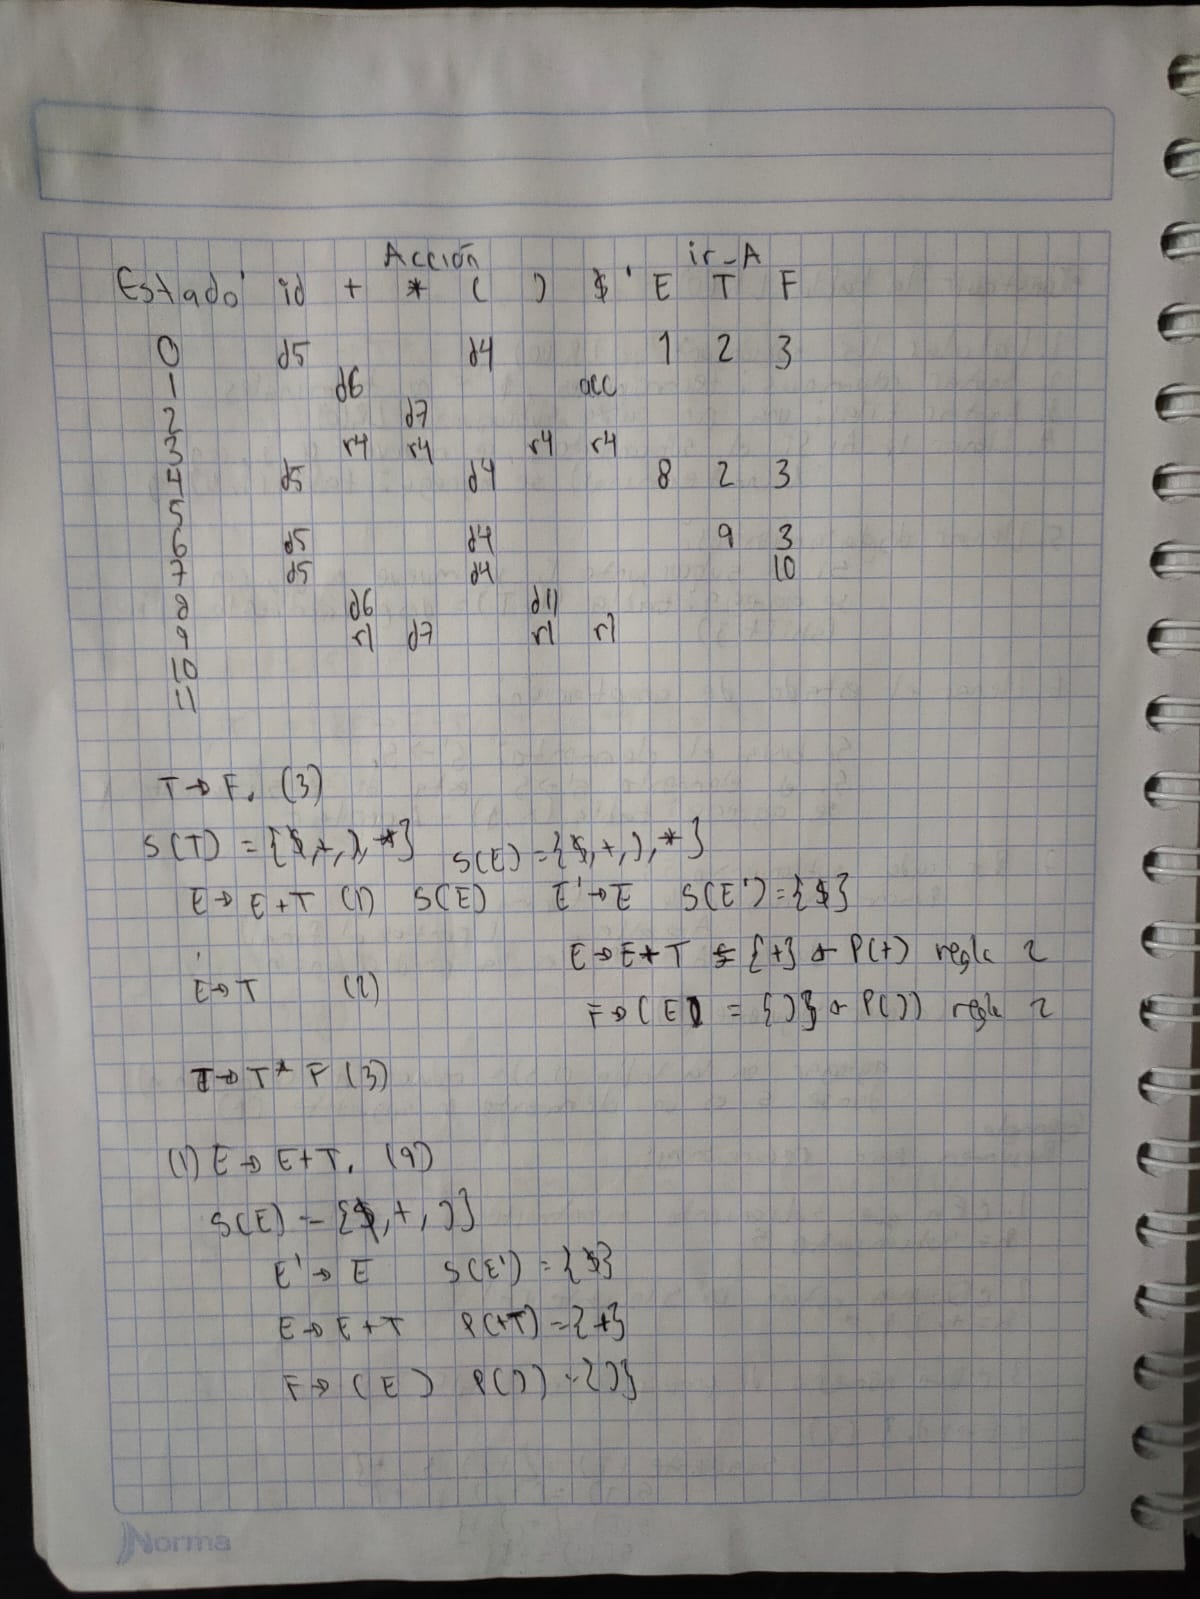 Acción ir_A
Estado id + * ( ) $ E T F
0 d5 d4 1 2 3
1 d6 acc
2 d7
3 r4 r4 r4 r4
4 d5 d4 8 2 3
5
6 d5 d4 9 3
7 d5 d4 10
8 d6 d11
9 r1 d7 r1 r1
10
11
T → F. (3)
S(T) = {$,+,),*} S(E) = {$,+,),*}
E → E+T (1) S(E) E' → E S(E') = {$}
E → E+T = {+} P(+) regla 2
E → T (2)
F → (E) = {)} P()) regla 2
T → T* F (3)
(1) E → E+T. (9)
S(E) = {$,+,)}
E' → E S(E') = {$}
E → E+T P(+T) = {+}
F → (E) P()) = {)}
Norma